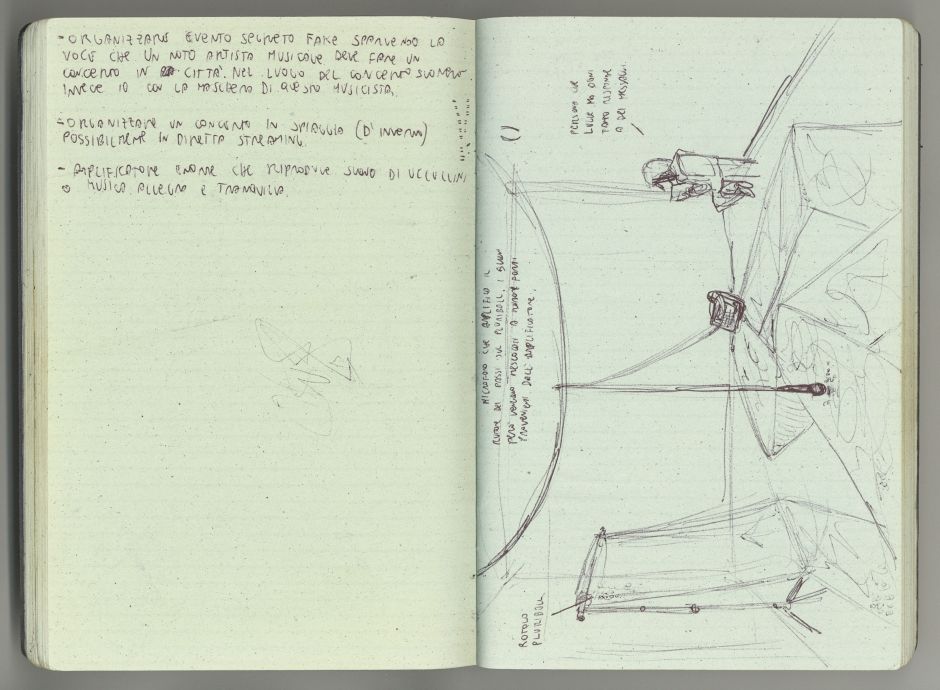 - ORGANIZZARE EVENTO SEGRETO FAKE SPARGENDO LA
VOCE CHE UN NOTO ARTISTA MUSICALE DEVE FARE UN
CONCERTO IN CITTÀ. NEL LUOGO DEL CONCERTO SUONERÒ
INVECE IO CON LA MASCHERA DI QUESTO MUSICISTA.
- ORGANIZZARE UN CONCERTO IN SPIAGGIA (D'INVERNO)
POSSIBILMENTE IN DIRETTA STREAMING.
- AMPLIFICATORE ENORME CHE RIPRODUCE SUONO DI UCCELLINI
O MUSICA ALLEGRA E TRANQUILLA.
PERSONA CHE
LEGGE MA OGNI
TANTO RISPONDE
A DEI MESSAGGI.
MICROFONO CHE AMPLIFICA IL
RUMORE DEI PASSI SUL PLURIBALL. I SUONI
PERÒ VENGONO MESCOLATI A RUMORI
PROVENIENTI DALL'AMPLIFICATORE.
ROTOLO
PLURIBALL